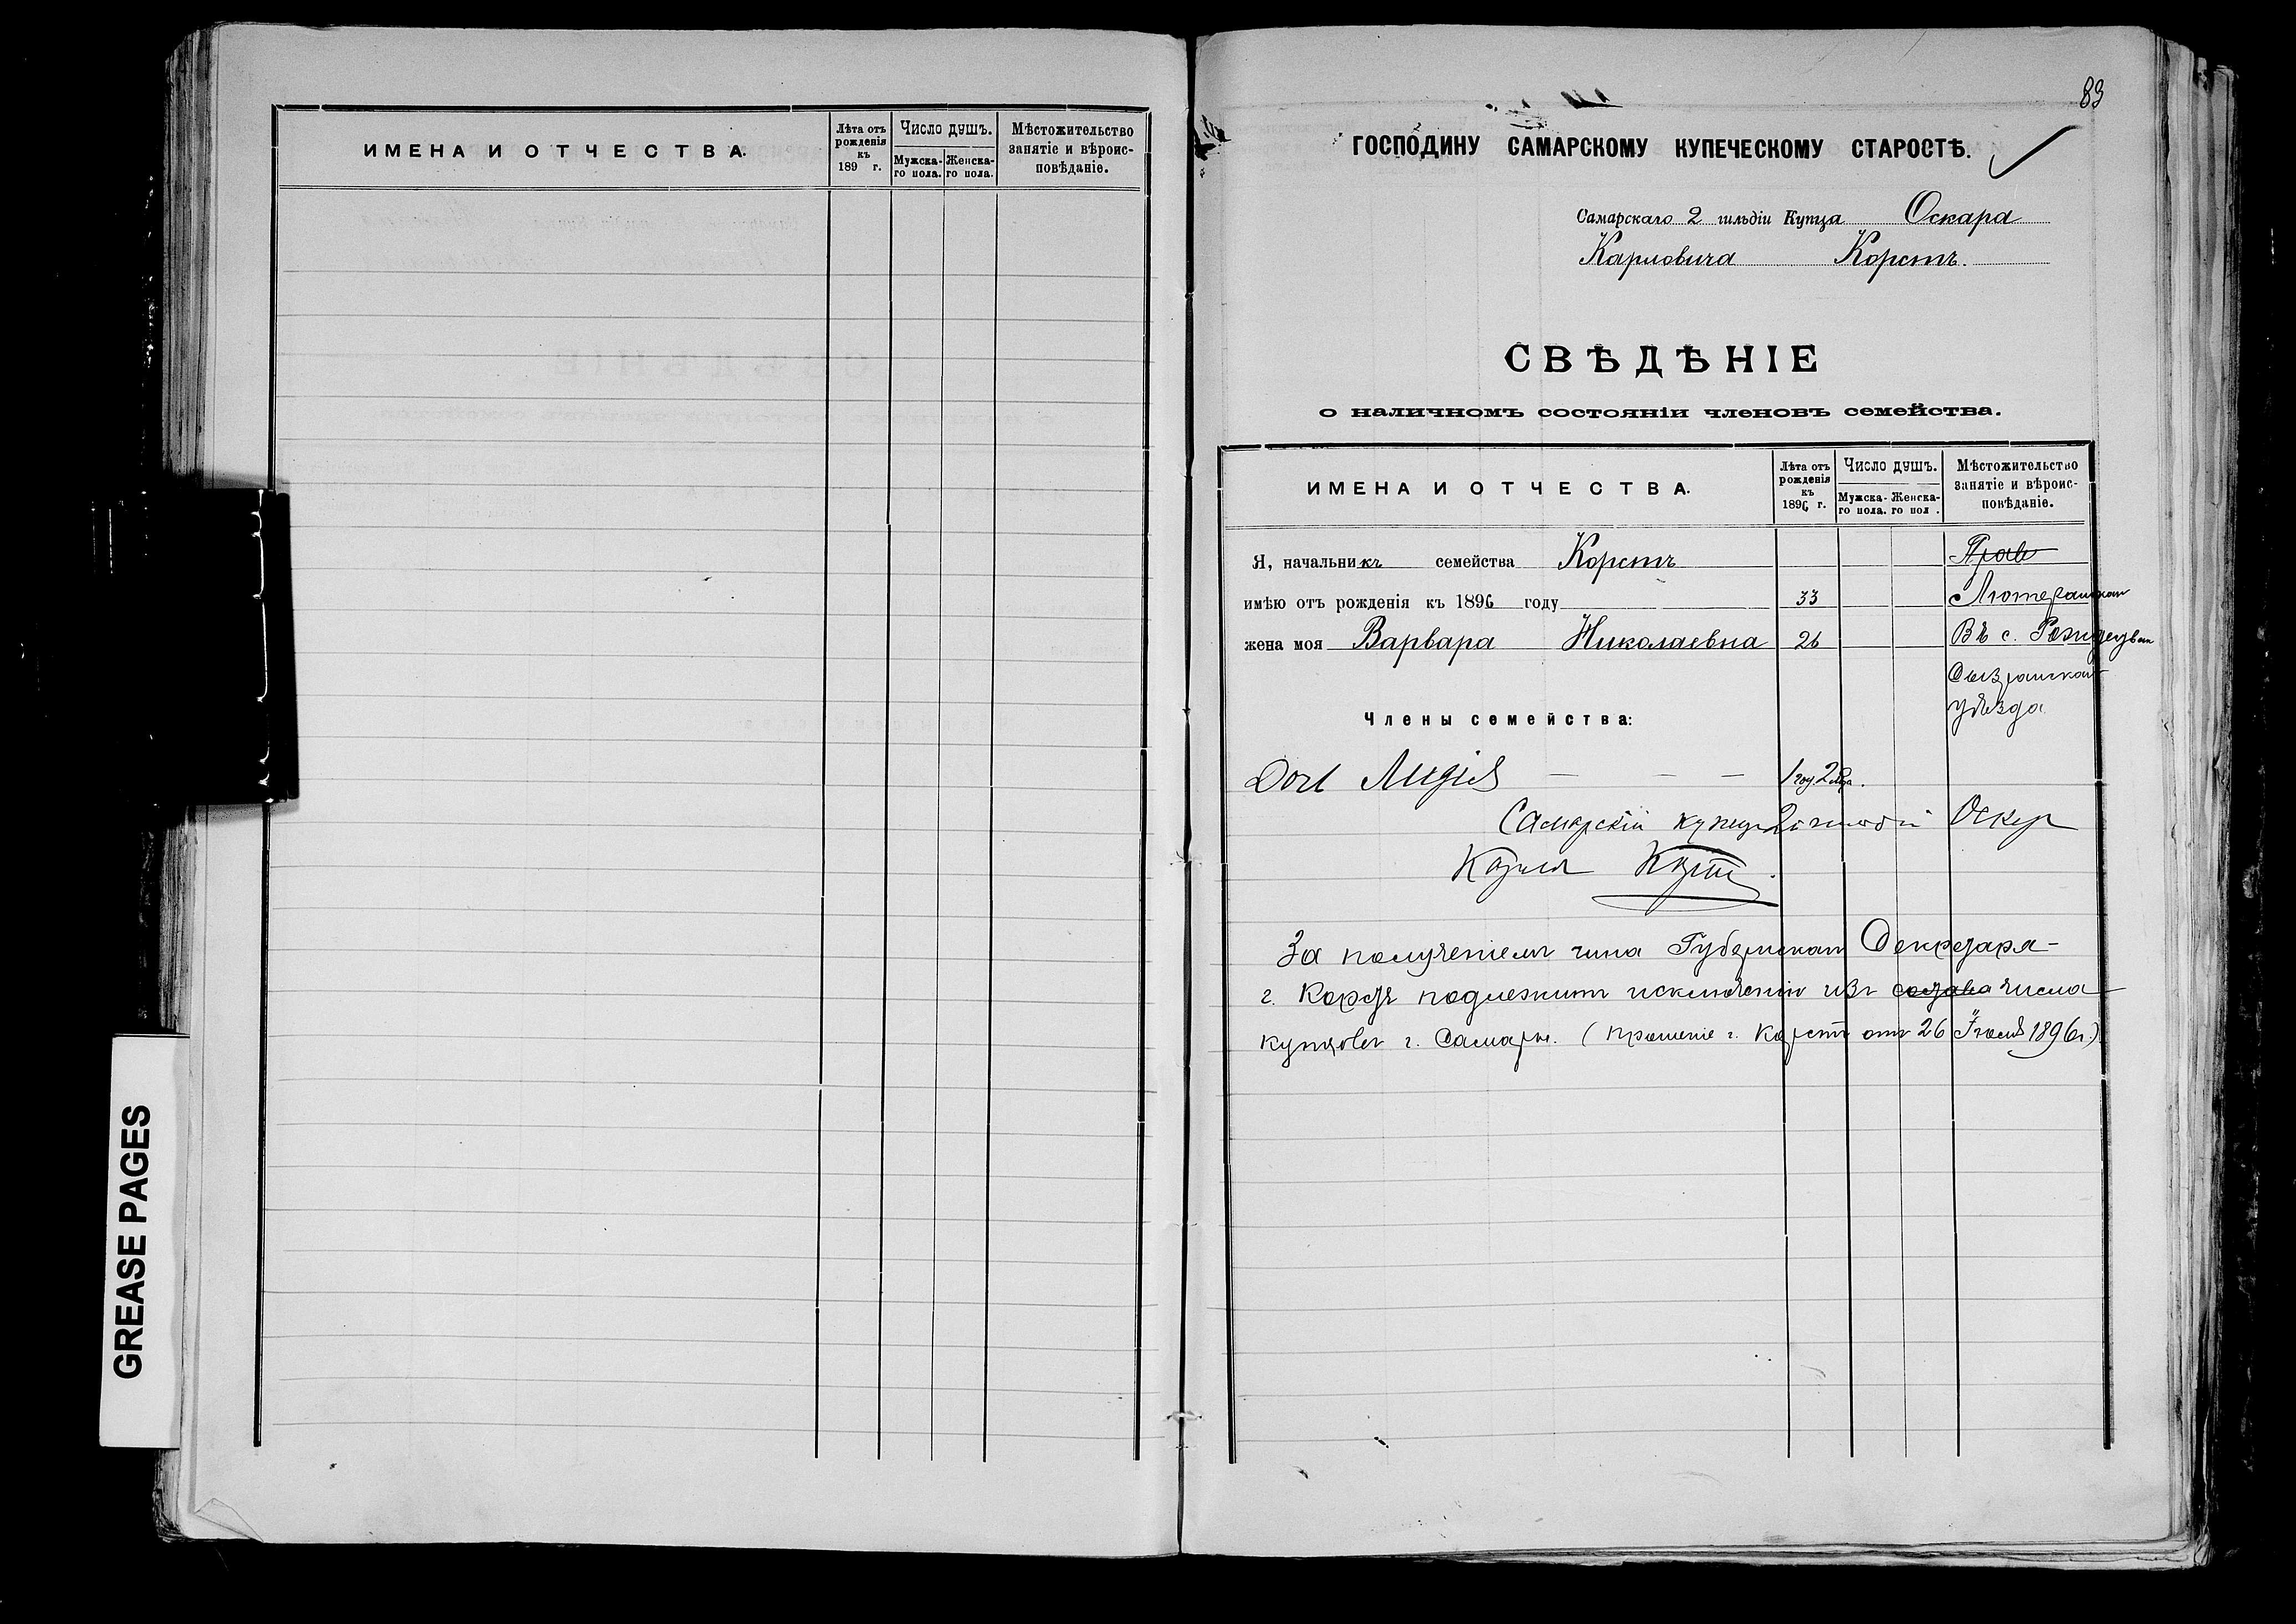 ИМЕНА И ОТЧЕСТВА.
Лѣта отъ рожденія къ 189 г.
Число душъ.
Мужска-го пола.
Женска-го пола.
Мѣстожительство занятіе и вѣроис-повѣданіе.
GREASE PAGES
83
ГОСПОДИНУ САМАРСКОМУ КУПЕЧЕСКОМУ СТАРОСТѢ.
Самарскаго 2 гильдіи Купца Оскара
Карловича Корстъ.
СВѢДѢНІЕ
о наличномъ состояніи членовъ семейства.
ИМЕНА И ОТЧЕСТВА.
Лѣта отъ рожденія къ 1896 г.
Число душъ.
Мужска-го пола.
Женска-го пол .
Мѣстожительство занятіе и вѣроис-повѣданіе.
Я, начальникъ семейства Корстъ Прав
имѣю отъ рожденія къ 1896 году 33
жена моя Варвара Николаевна 26 Въ с.
уѣзда
Члены семейства:
Лидія — — — 1 год. 2
Самарскій купец 2 Оскар
Корстъ
За полученіемъ чина Губернскаго Секретаря-
г. Корстъ подлежитъ исключенію изъ состава числа
купцовъ г. Самары. (прошеніе г. Корстъ отъ 26 1896 г.)